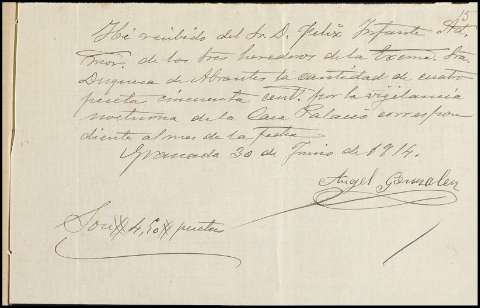 15
Hé recibido del Sr. D. Felix Infante Ad-
mor. de los tres herederos de la Exema. Sra.
Duquesa de Abrantes la cantidad de cuatro
peseta cincuenta cent. por la vigilancia
nocturna de la Casa Palacio correspon
diente al mes de la fecha
Granada 30 de Junio de 1914.
Angel Gonzalez
Son 4,50 pesetas